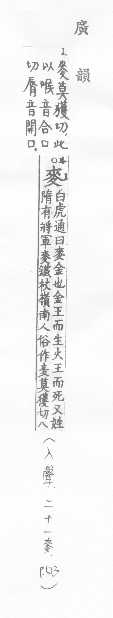 廣韻
1. 麥莫獲切,此
以脣音合口
切脣音開口。
麥 白虎通曰麥金也金王而生火王而死又姓
隋有將軍麥鐵杖嶺南人俗作麦莫獲切八
(入聲.二十一麥. P.43)